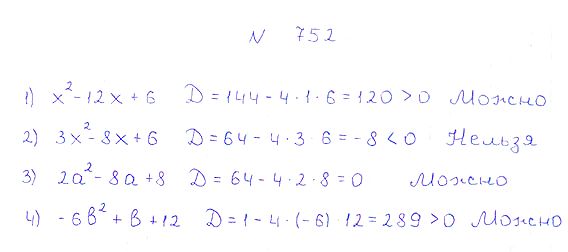 N 752
1) x² - 12x + 6 D = 144 - 4 · 1 · 6 = 120 > 0 Можно
2) 3x² - 8x + 6 D = 64 - 4 · 3 · 6 = -8 < 0 Нельзя
3) 2a² - 8a + 8 D = 64 - 4 · 2 · 8 = 0 Можно
4) -6в² + в + 12 D = 1 - 4 · (-6) · 12 = 289 > 0 Можно